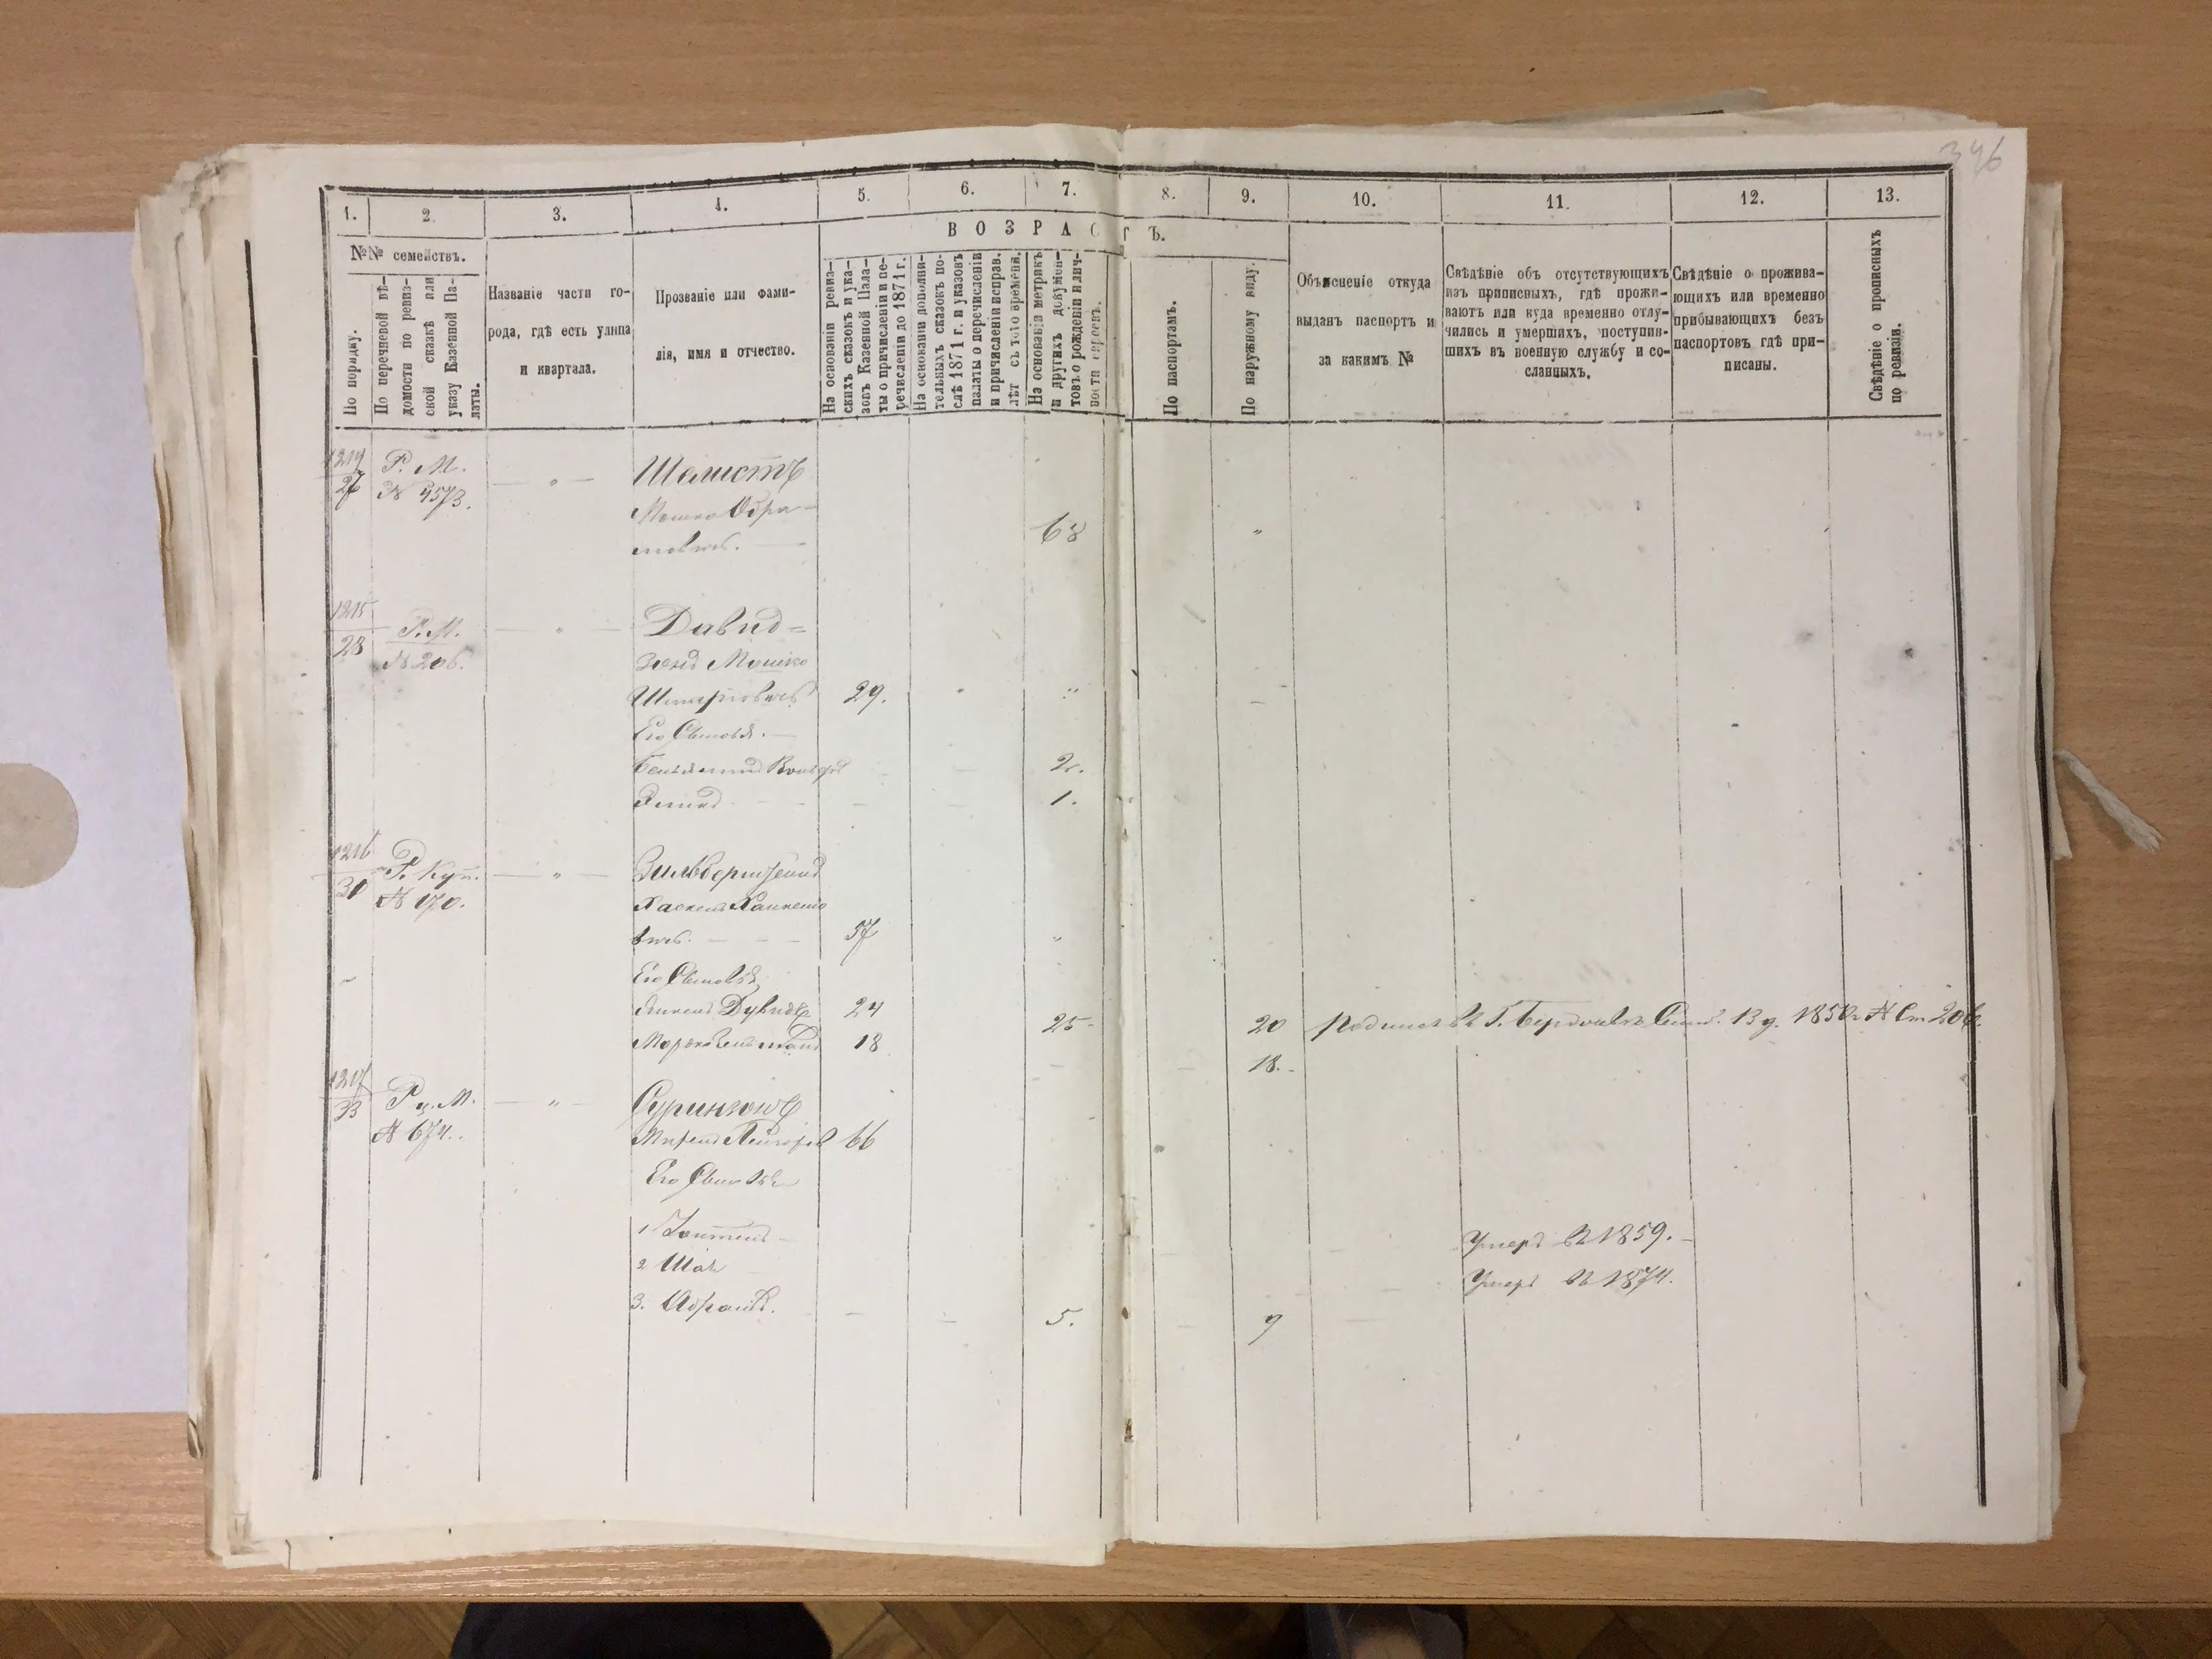 346
1. 2. 3. 4. 5. 6. 7. 8. 9. 10. 11. 12. 13.
№№ семействъ.
В О З Р А С Т Ъ.
По порядку.
По перечневой вѣ-
домости по ревиз-
ской сказкѣ или
указу Казенной Па-
латы.
Названіе части го-
рода, гдѣ есть улица
и квартала.
Прозваніе или фами-
лія, имя и отчество.
На основаніи ревиз-
скихъ сказокъ и ука-
зовъ Казенной Пала-
ты о причисленіи и пе-
речисленіи до 1871 г.
На основаніи дополни-
тельныхъ сказокъ по-
слѣ 1871 г. и указовъ
палаты о перечисленіи
и причисленіи исправ.
лѣт съ того времени.
На основаніи метрикъ
и другихъ докумен-
товъ о рожденіи и лич-
ности евреевъ.
По паспортамъ.
По наружному виду.
Объясненіе откуда
выданъ паспортъ и
за какимъ №
Свѣдѣніе объ отсутствующихъ
изъ приписныхъ, гдѣ прожи-
ваютъ или куда временно отлу-
чились и умершихъ, поступив-
шихъ въ военную службу и со-
сланныхъ.
Свѣдѣніе о прожива-
ющихъ или временно
прибывающихъ безъ
паспортовъ гдѣ при-
писаны.
Свѣдѣніе о прописныхъ
по ревизіи.
1214 Р. М. — " — Шамистъ
27 № 4573.
Мошко Абра-
мовичъ. — 68 "
1215 Р. М. — " — Давид=
28 № 206.
зонъ Мошко
29. " "
Его Сыновья. —
2.
1.
1216 Р. Куп. — " — Зильберштейнъ
30 № 170.
Хаскель
вичъ. — 57 "
Его Сыновья
Дувидъ 24 25 20 Родился въ Г. Бердичевѣ 13 д. 1850 № Ст 206.
18 18.
1217 Р. М. — " —
33 № 674.
66
Его Сыновья
1 Умеръ въ 1859.
2 Шая Умеръ въ 1874.
3. Абрамъ. — — 5. — 9